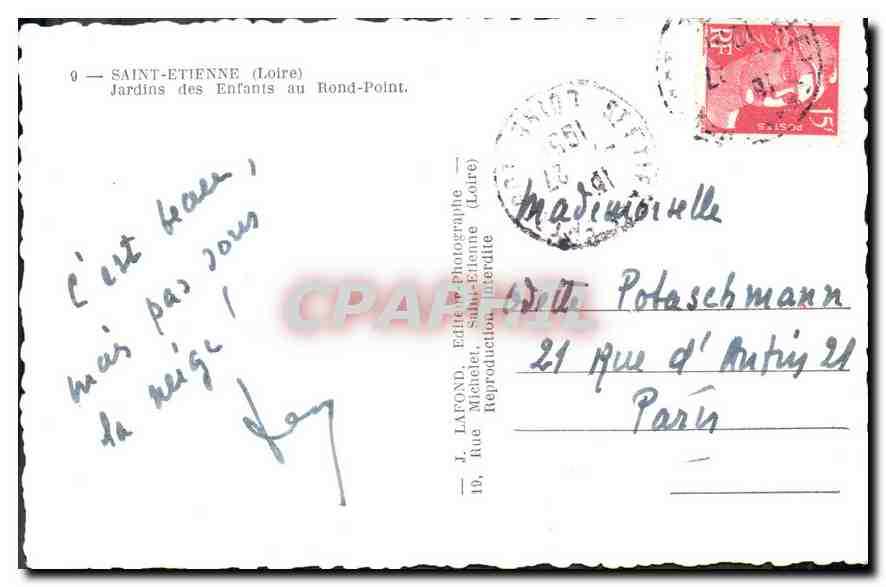 9 — SAINT-ETIENNE (Loire)
Jardins des Enfants au Rond-Point.
c'est beau,
mais pas sous
la neige !
— J. LAFOND, Editeur-Photographe —
19, Rue Michelet, Saint-Etienne (Loire)
Reproduction interdite
RF
15F
POSTES
ST ETIENNE
LOIRE
Mademoiselle
Odette Potaschmann
21 Rue d'Antin 21
Paris
CPAPHIL